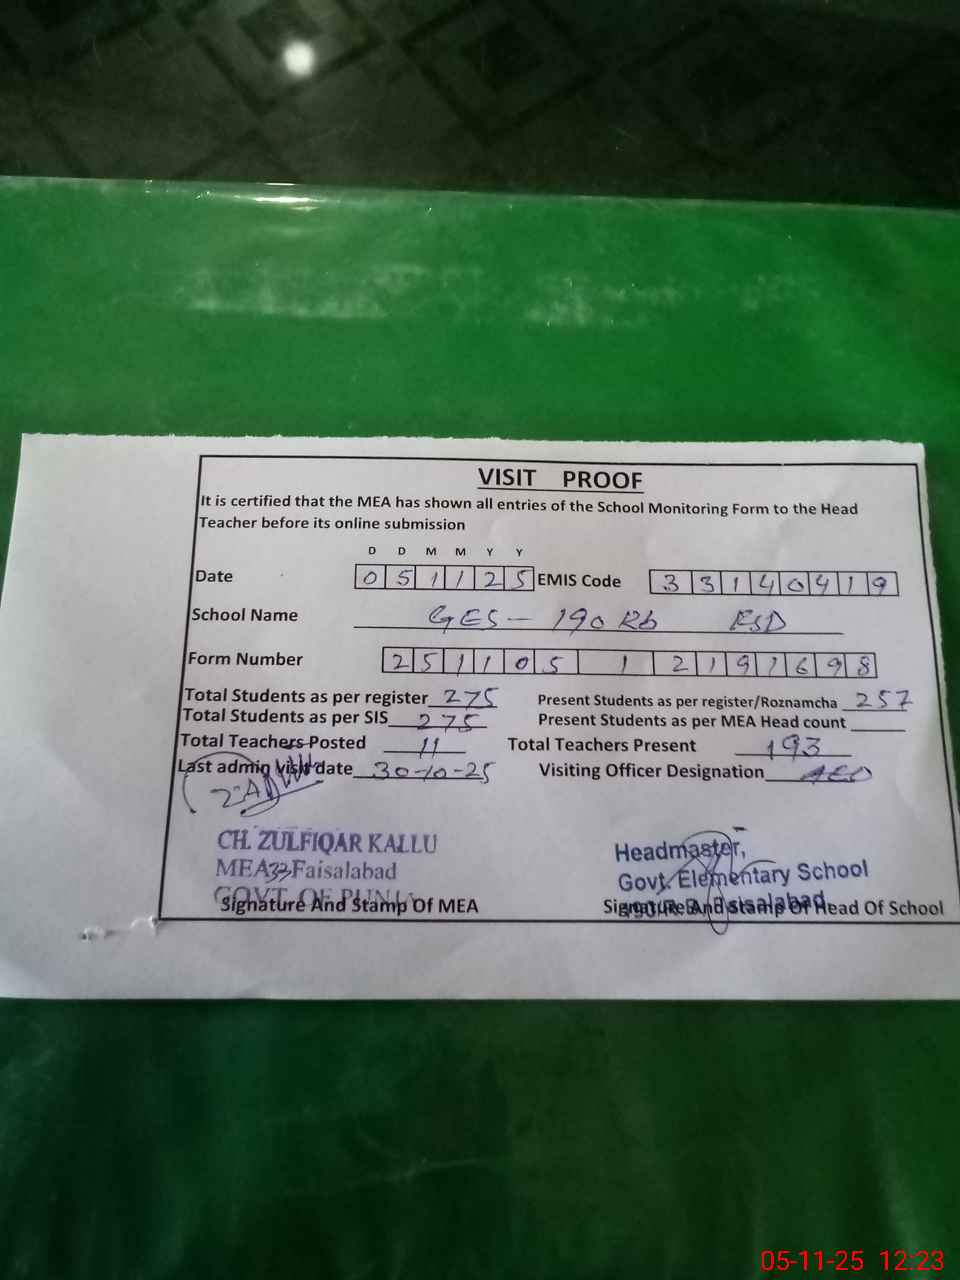 VISIT PROOF
It is certified that the MEA has shown all entries of the School Monitoring Form to the Head
Teacher before its online submission
D D M M Y Y
Date 0 5 1 1 2 5 EMIS Code 3 3 1 4 0 4 1 9
School Name GES - 190 Rb FSD
Form Number 2 5 1 1 0 5 1 2 1 9 1 6 9 8
Total Students as per register 275 Present Students as per register/Roznamcha 257
Total Students as per SIS 275 Present Students as per MEA Head count
Total Teachers Posted 11 Total Teachers Present 193
Last admin visit date 30-10-25 Visiting Officer Designation AEO
CH. ZULFIQAR KALLU
MEA 33 Faisalabad
GOVT. OF PUNJAB
Signature And Stamp Of MEA
Headmaster,
Govt. Elementary School
Faisalabad
Signature And Stamp Of Head Of School
05-11-25 12:23